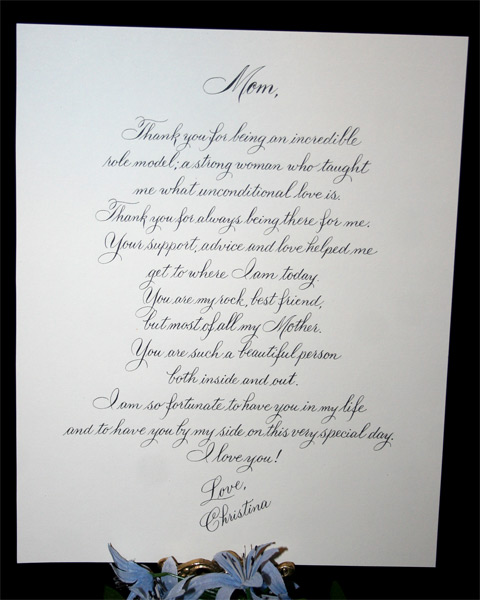 Mom,
Thank you for being an incredible
role model; a strong woman who taught
me what unconditional love is.
Thank you for always being there for me.
Your support, advice and love helped me
get to where I am today.
You are my rock, best friend,
but most of all my Mother.
You are such a beautiful person
both inside and out.
I am so fortunate to have you in my life
and to have you by my side on this very special day.
I love you!
Love,
Christina